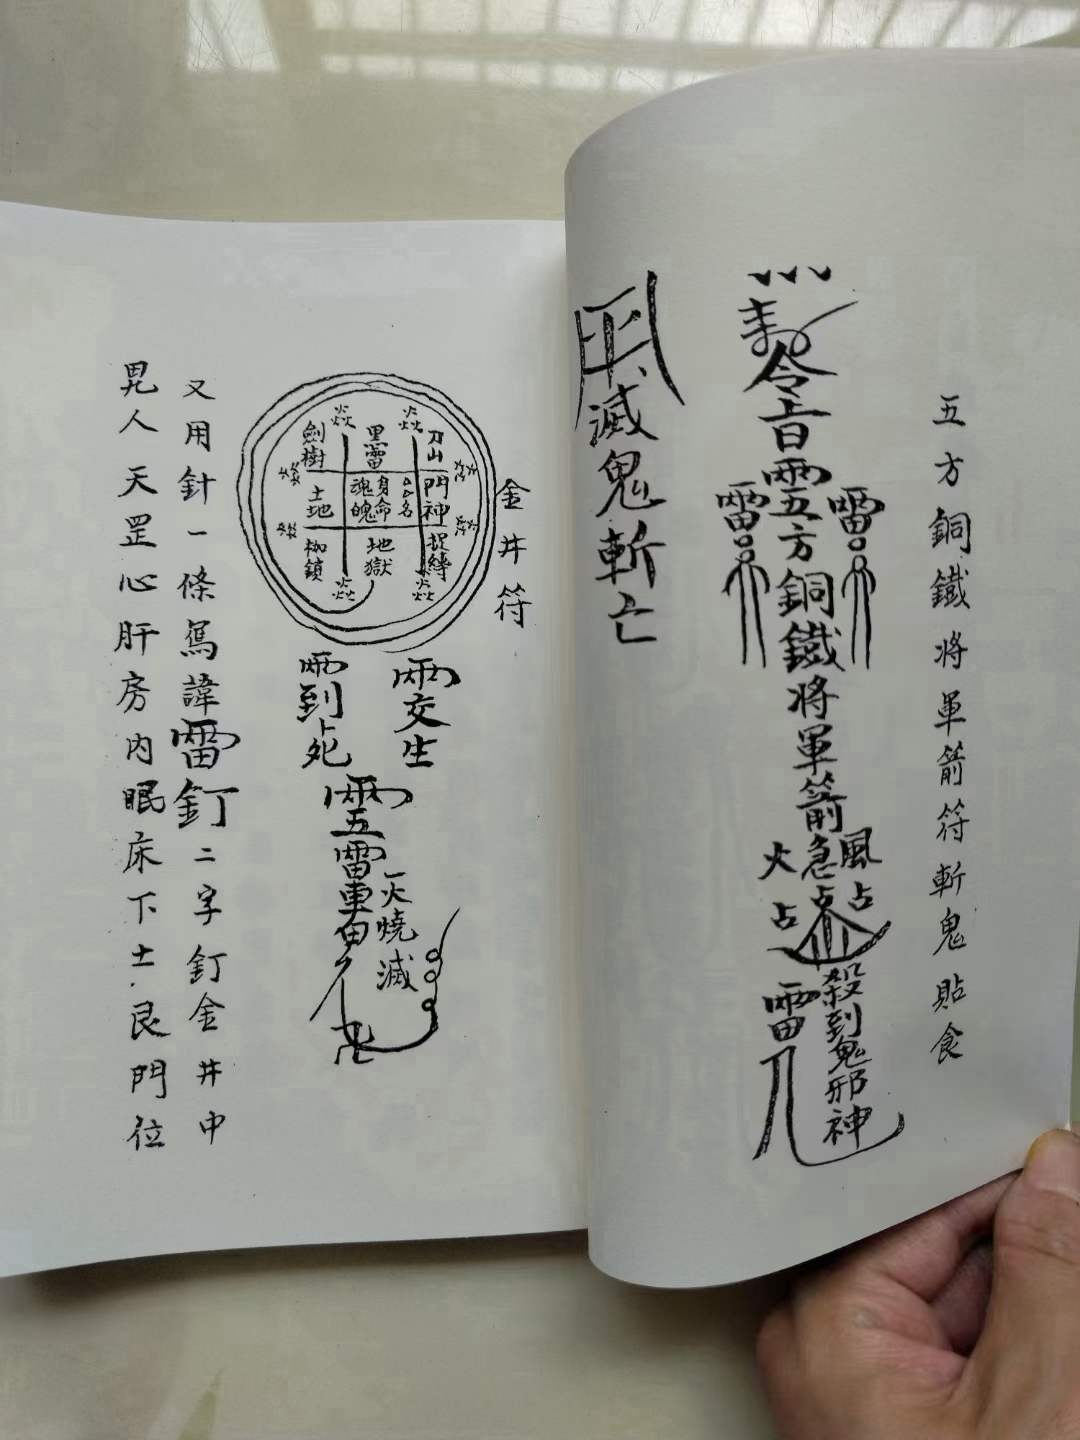 五方銅鐵將軍箭符斬鬼貼食
令
五方銅鐵將軍箭
雷
雷
急
風
火
占
占
殺到鬼邪神
雷
滅鬼斬亡
金井符
刀山
門神
捉縛
黑雷
身命
魂魄
名
地獄
劍樹
土地
枷鎖
交生
到死
五雷
火燒滅
又用針一條寫諱雷釘二字釘金井中
人天罡心肝房内眠床下土艮門位